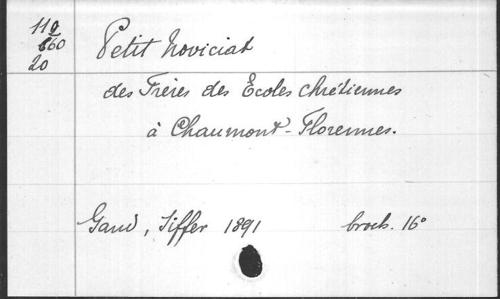 119
660
20
Petit Noviciat
des Frères des Ecoles chrétiennes
à Chaumont-Florennes.
Gand, Siffer 1891 broch. 16°